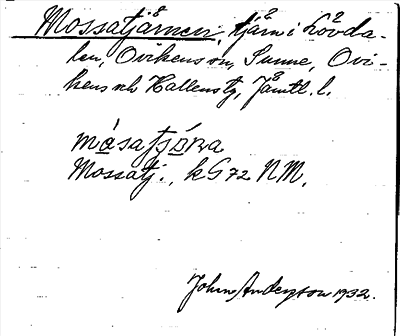 Mossatjärnen, tjärn i Lövda-
len, Ovikens sn, Sunne, Ovi-
kens och Hallens tg, Jämtl. l.
Mossatj., k G 72 NM.
John Anderson 1932.